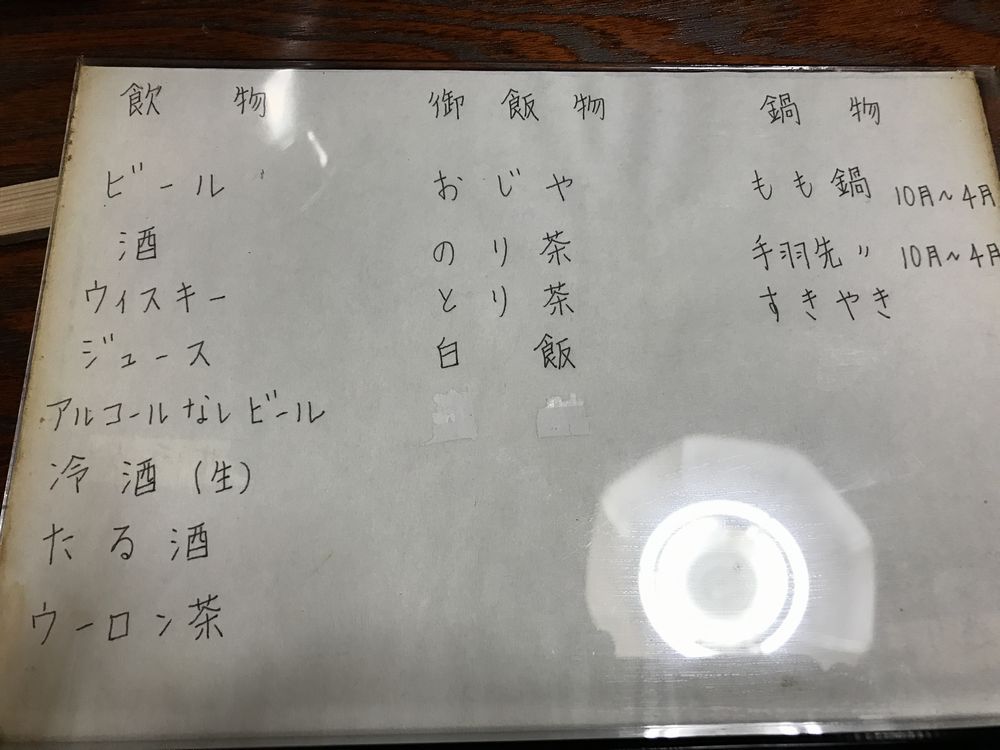 飲物
ビール
酒
ウィスキー
ジュース
アルコールなしビール
冷酒(生)
たる酒
ウーロン茶
御飯物
おじや
のり茶
とり茶
白飯
鍋物
もも鍋 10月~4月
手羽先〃 10月~4月
すきやき